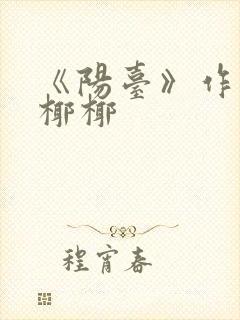 《陽臺》作
椰椰
程宵春